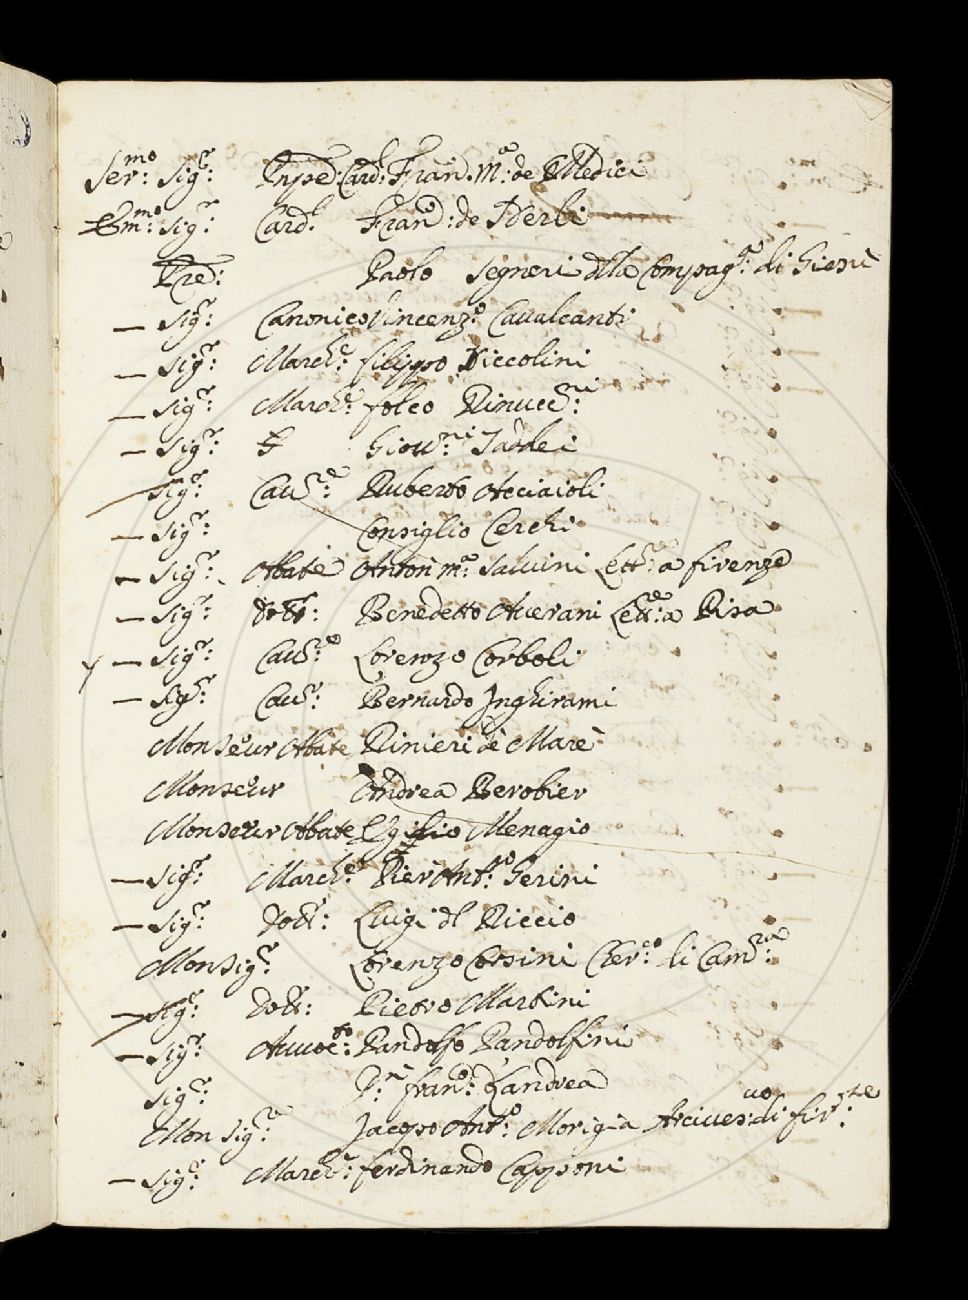 Ser:mo Sig:r Prpe: Card: Fran: M:a de Medici
Em:mo Sig:r Card:l Fran: de Nerli
Pre: Paolo Segneri dlla Compag:a di Giesù
— Sig:r Canonico Vincenz:o Caualcanti
— Sig:r March:e Filippo Niccolini
— Sig:r March:e Folco Rinucc:ni
— Sig:r Giou:ni Taddei
Sig:r Cau:re Ruberto Acciaioli
— Sig:r Consiglio Cerchi
— Sig:r Abate Anton m:a Saluini Lett:re a Firenze
— Sig:r Dott:r Benedetto Auerani Lett:re a Pisa
— Sig:r Cau:re Lorenzo Corboli
— Sig:r Cau:r Bernardo Inghirami
Monseur Abate Rinieri de Marè
Monseur Andrea Berobier
Monseur Abate Egidio Menagio
— Sig:r March:e Pier Ant:o Gerini
— Sig:r Dott: Luigi dl Riccio
Monsig:r Lorenzo Corsini Cher:co di Cam:ra
— Sig:r Dott:r Pietro Martini
— Sig:r Auuoc:to Pandolfo Pandolfini
Sig:r P:r Fran:o Landrea
Monsig:r Jacopo Ant:o Morigia Arciues:uo di Fir:ze
— Sig:r March:e Ferdinando Capponi